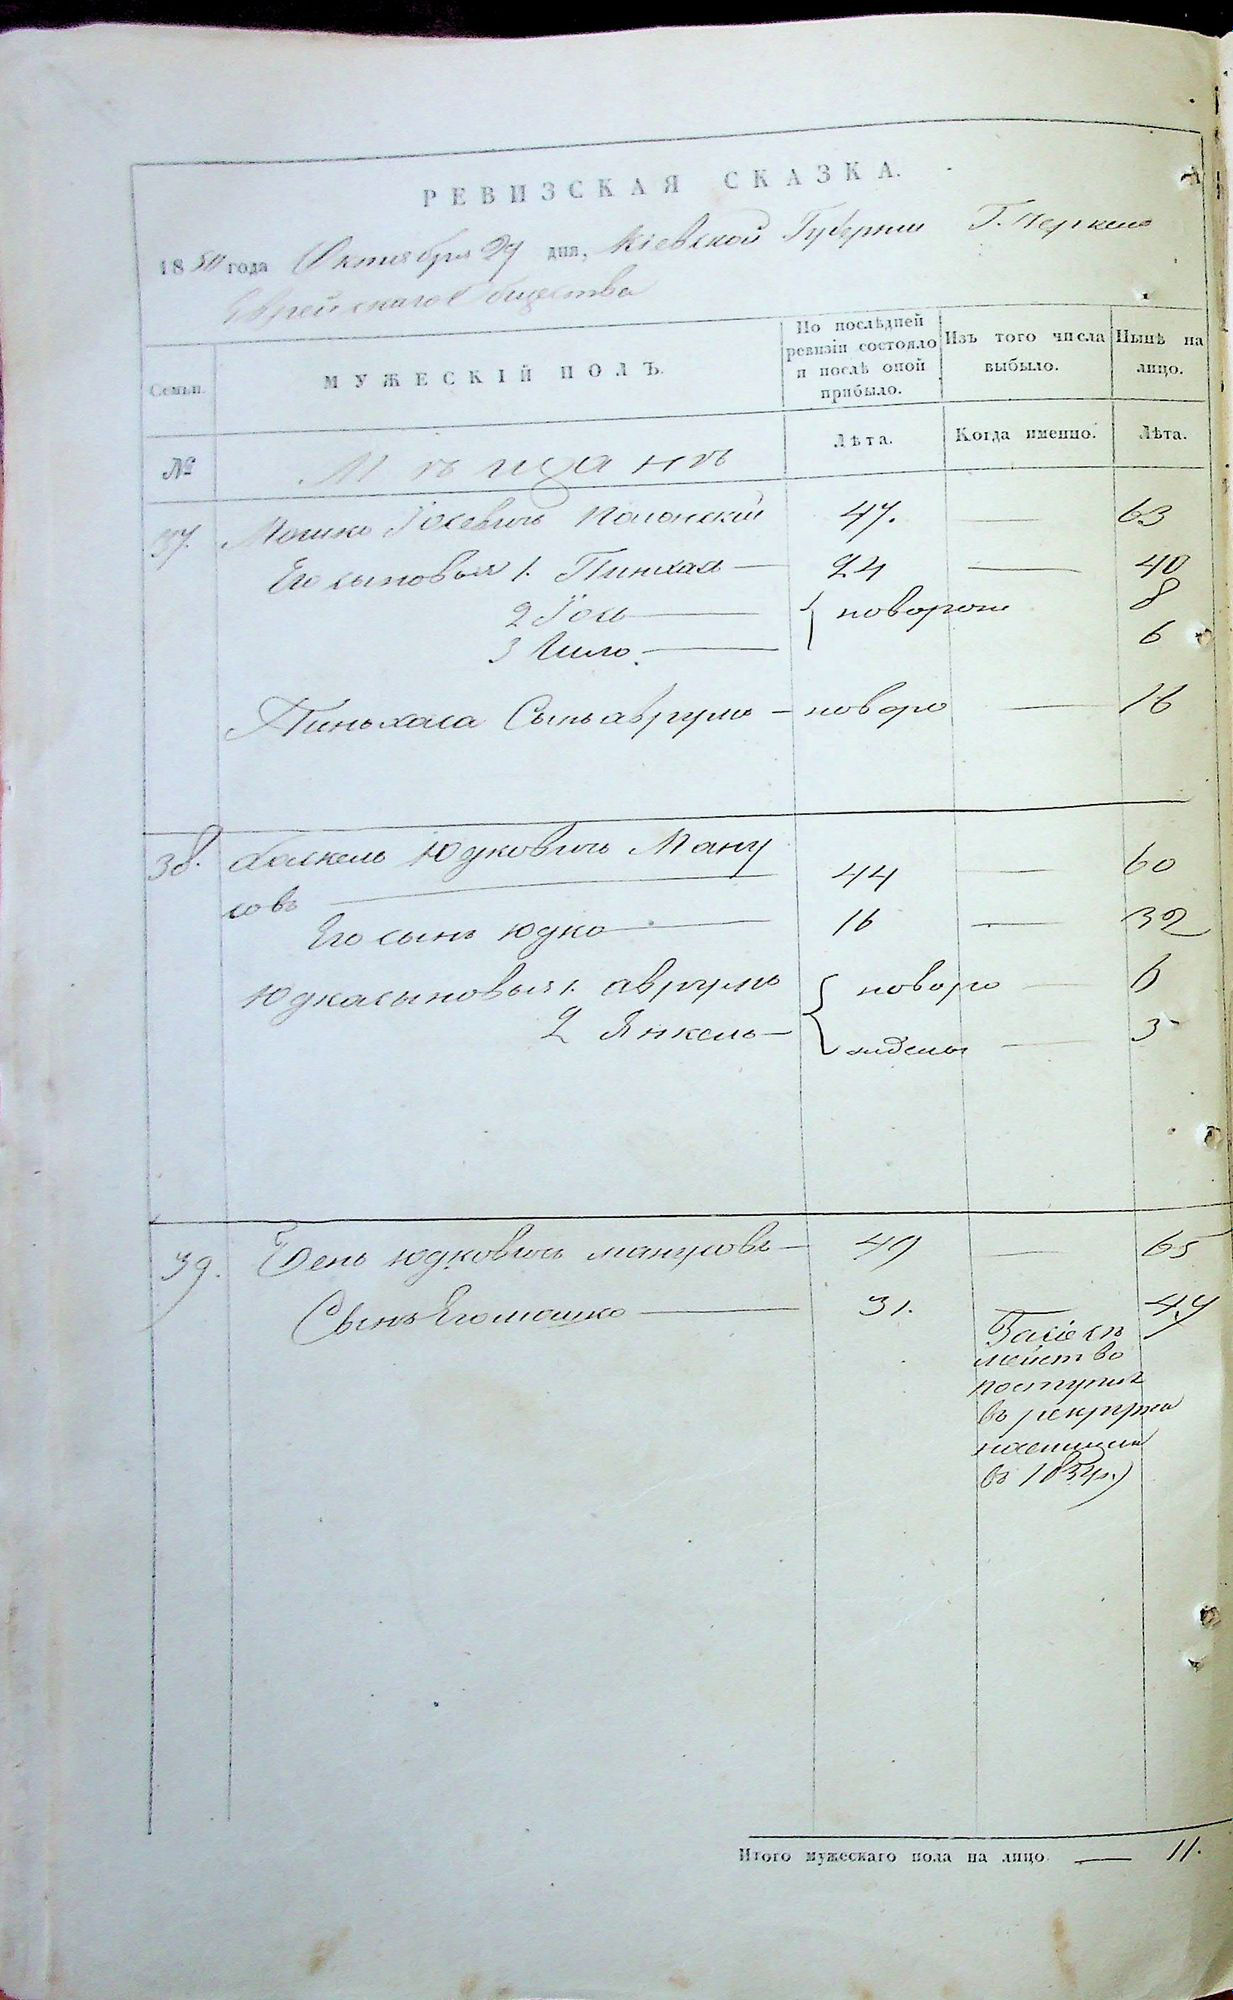 РЕВИЗСКАЯ СКАЗКА.
1850 года Октября 29 дня, Кіевской Губерніи Г. Черкасъ
Еврейскаго Общества
Семьи. МУЖЕСКІЙ ПОЛЪ. По послѣдней ревизіи состояло и послѣ оной прибыло. Изъ того числа выбыло. Нынѣ на лицо.
№ Мѣщанъ Лѣта. Когда именно. Лѣта.
37. Мошко Іосевичь Полонскій 47. — 63
Его сыновья 1. Пинхас — 24 — 40
2 Іось — { новорож 8
3 — 6
Пиньхаса Сынъ аврумъ — новоро — 16
38. Юдковичь Ману
совъ — 44 — 60
Его сынъ Юдко — 16 — 32
Юдка сыновья 1. аврумъ { новоро — 6
2 Янкель — — 3
39. Юдковичь мануковъ — 49 — 65
Сынъ Его мошко — 31. 47
мейство
поступил
въ
въ 1854г.)
Итого мужескаго пола на лицо — 11.